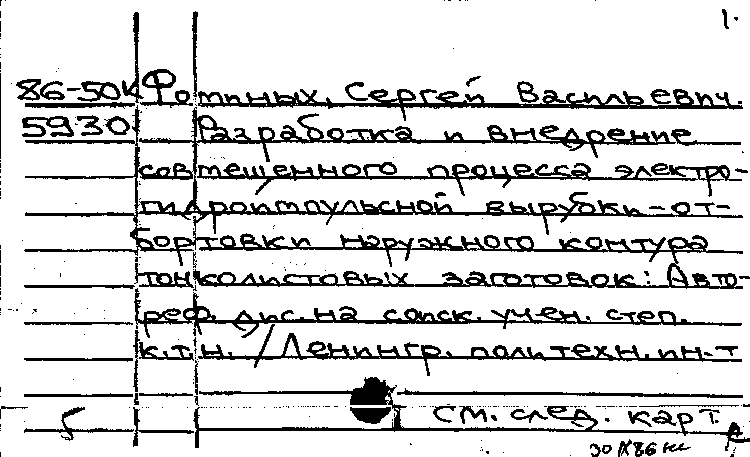 1.
86-50к Фотиных, Сергей Васильевич.
5930 Разработка и внедрение
совмещенного процесса электро-
гидроимпульсной вырубки-от-
бортовки наружного контура
тонколистовых заготовок: Авто-
реф. дис. на соиск. учен. степ.
к.т.н. / Ленингр. политехн. ин-т
см. след. карт.